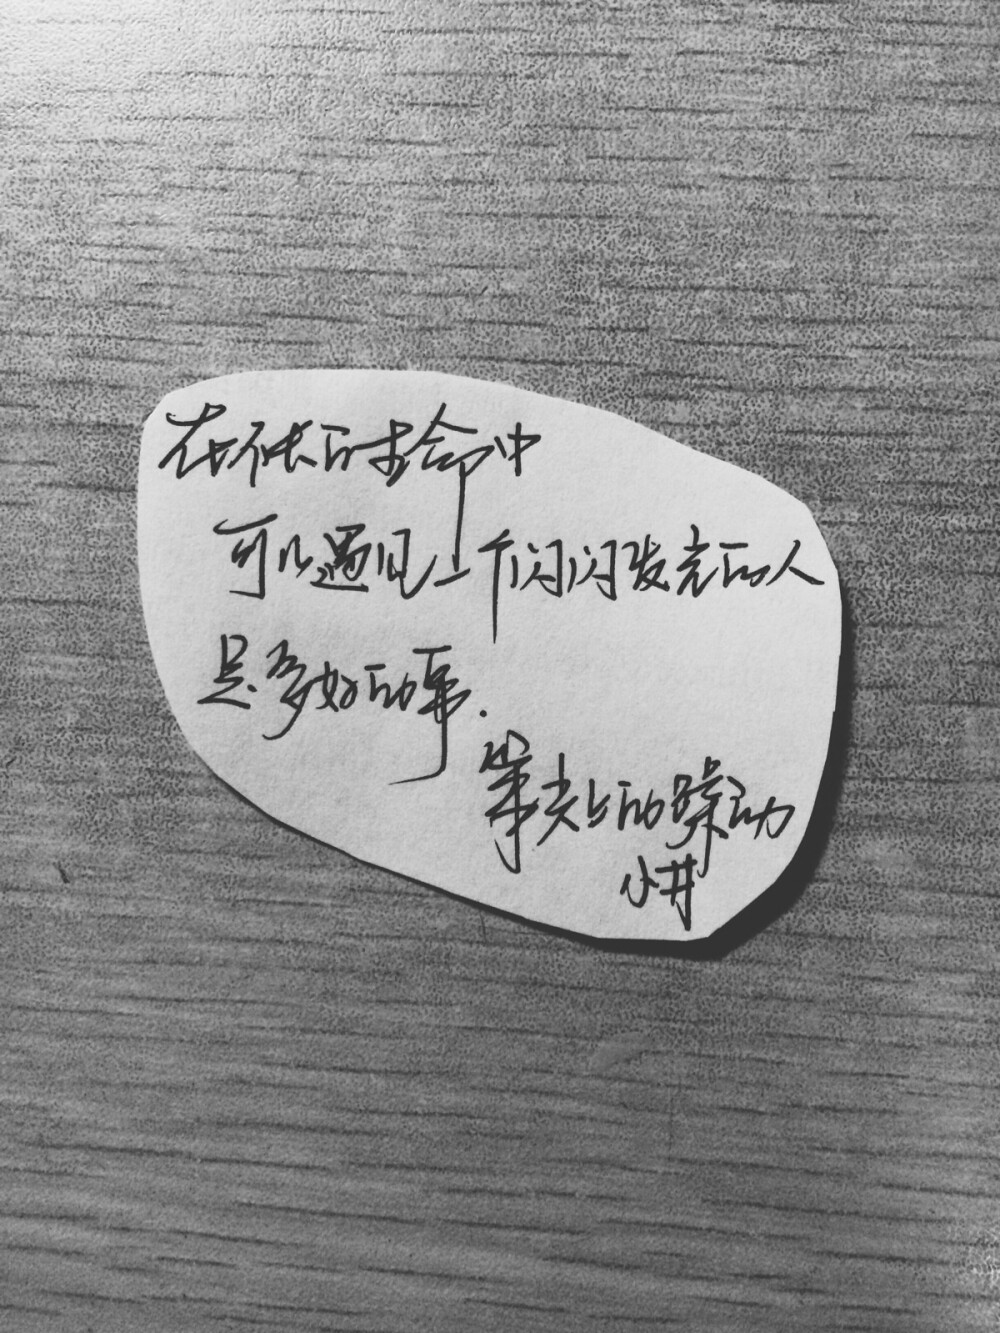 在不长的生命中
可以遇见一个闪闪发光的人
是多好的事.
笔尖上的躁动
小井